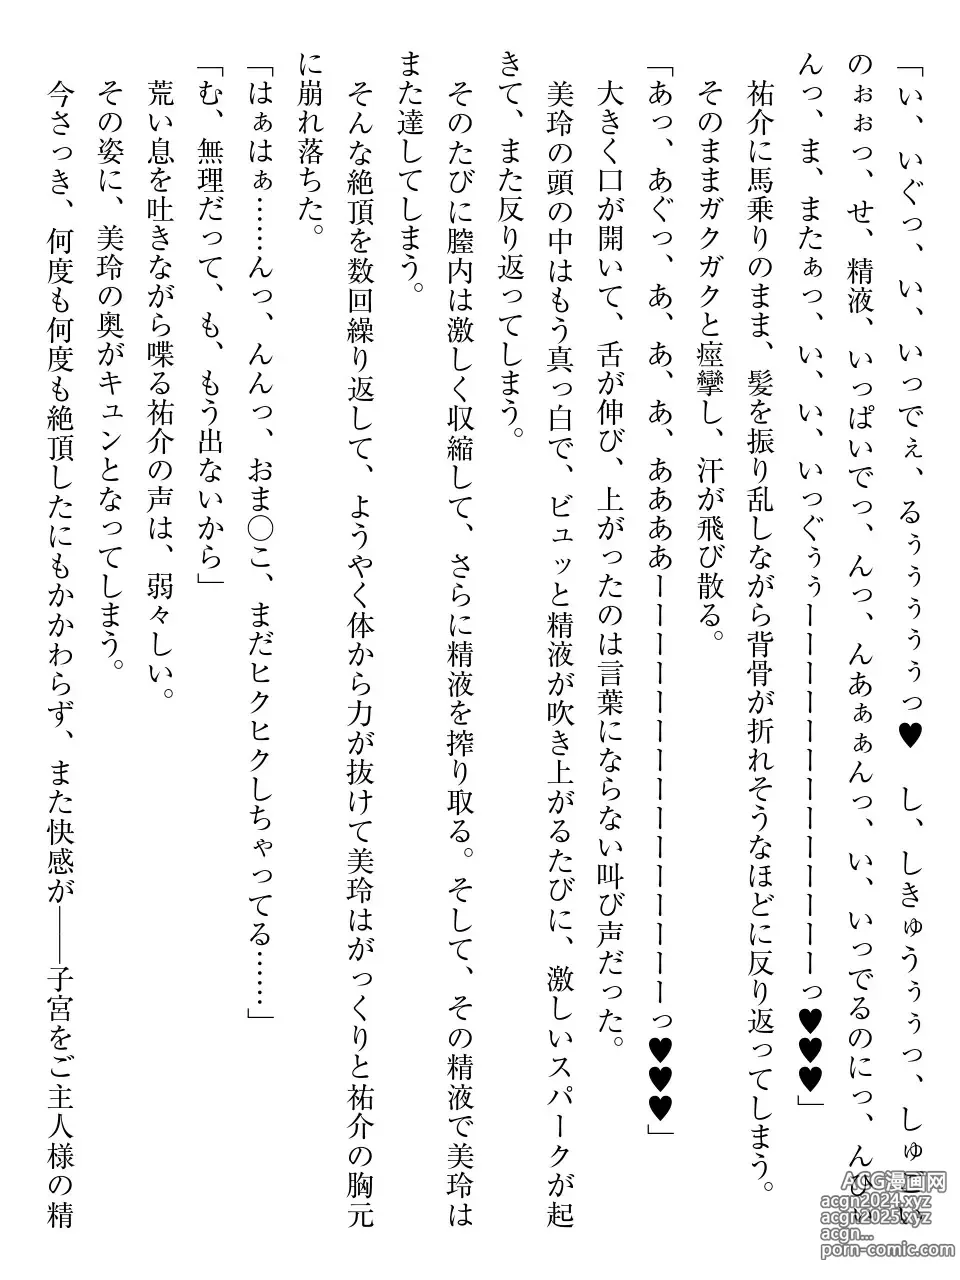 「い、いぐっ、い、いっでぇ、るぅぅぅぅぅっ♥　し、しきゅうぅぅっ、しゅごい
のぉぉっ、せ、精液、いっぱいでっ、んっ、んあぁぁんっ、い、いっでるのにっ、んひぃ
んっ、ま、またぁっ、い、い、いっぐぅぅーーーーーーーーーーーーーっ♥♥♥」
祐介に馬乗りのまま、髪を振り乱しながら背骨が折れそうなほどに反り返ってしまう。
そのままガクガクと痙攣し、汗が飛び散る。
「あっ、あぐっ、あ、あ、あ、ああああーーーーーーーーーーーーーーーっ♥♥♥」
大きく口が開いて、舌が伸び、上がったのは言葉にならない叫び声だった。
美玲の頭の中はもう真っ白で、ビュッと精液が吹き上がるたびに、激しいスパークが起
きて、また反り返ってしまう。
そのたびに膣内は激しく収縮して、さらに精液を搾り取る。そして、その精液で美玲は
また達してしまう。
そんな絶頂を数回繰り返して、ようやく体から力が抜けて美玲はがっくりと祐介の胸元
に崩れ落ちた。
「はぁはぁ……んっ、んんっ、おま〇こ、まだヒクヒクしちゃってる……」
「む、無理だって、も、もう出ないから」
荒い息を吐きながら喋る祐介の声は、弱々しい。
その姿に、美玲の奥がキュンとなってしまう。
今さっき、何度も何度も絶頂したにもかかわらず、また快感が――子宮をご主人様の精
ACG漫画网
acgn2024.xyz
acgn2025.xyz
acgn...
porn-comic.com